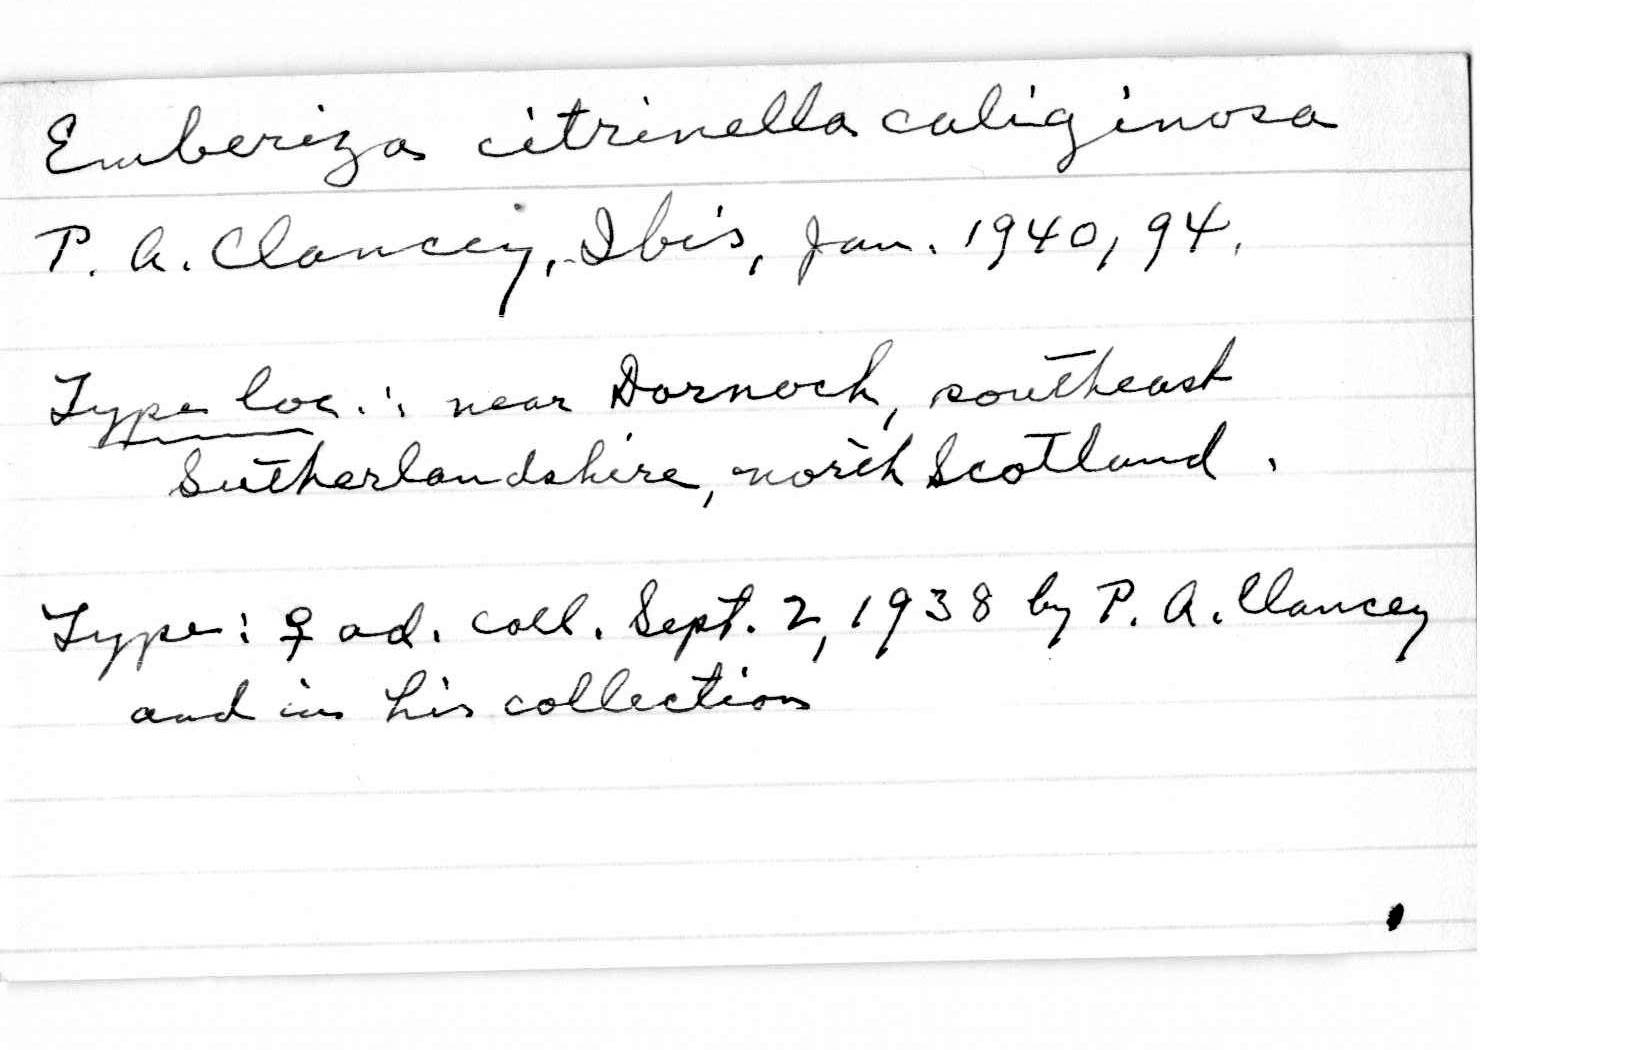 Emberiza citrinella caliginosa
P. A. Clancey, Ibis, Jan. 1940, 94.
Type loc.: near Dornoch, southeast
Sutherlandshire, north Scotland.
Type: ♀ ad. coll. Sept. 2, 1938 by P. A. Clancey
and in his collection